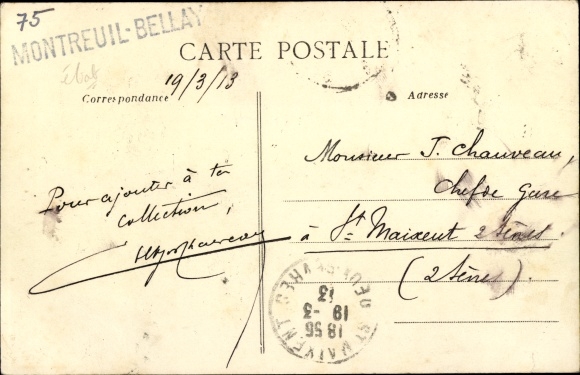 75
MONTREUIL-BELLAY
CARTE POSTALE
Correspondance
19/3/13
Adresse
Pour ajouter à ta
collection,
Monsieur J. Chauveau,
Chef de Gare
à St Maixent 2 Sèvres
(2 Sèvres).
ST MAIXENT DEUX-SÈVRES
18 55
19 -3
13